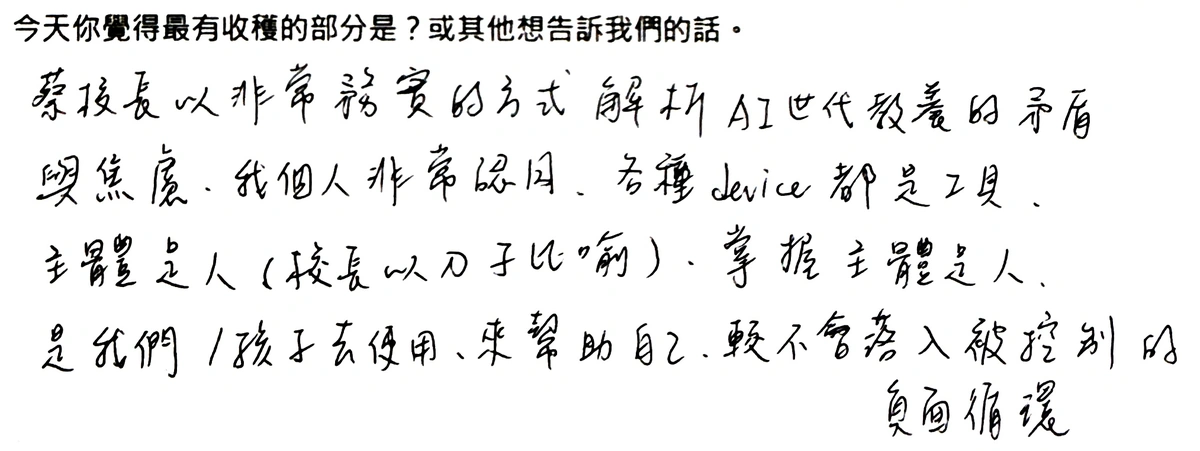 今天你覺得最有收穫的部分是？或其他想告訴我們的話。
蔡校長以非常務實的方式解析AI世代教養的矛盾
與焦慮、我個人非常認同、各種device都是工具、
主體是人（校長以刀子比喻）、掌握主體是人、
是我們/孩子去使用、來幫助自己、較不會落入被控制的
負面循環